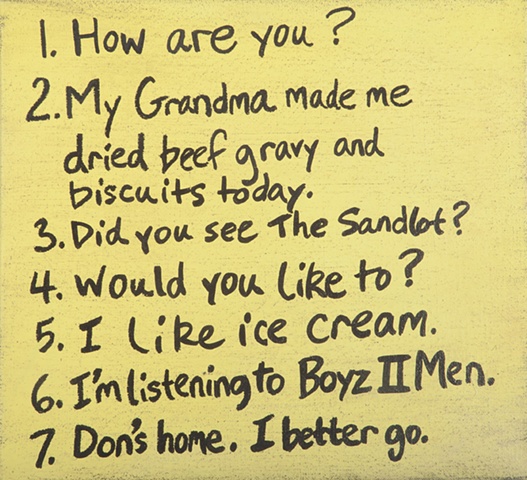 1. How are you?
2. My Grandma made me
dried beef gravy and
biscuits today.
3. Did you see The Sandlot?
4. Would you like to?
5. I like ice cream.
6. I'm listening to Boyz II Men.
7. Don's home. I better go.